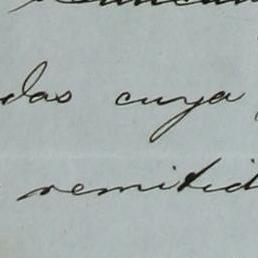 das cuya
remitid